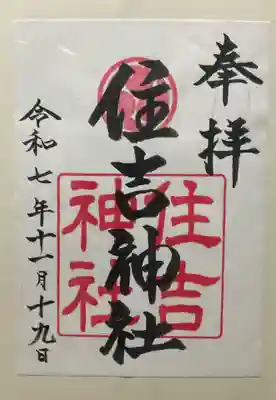 奉拝
住吉神社
住吉神社
令和七年十一月十九日